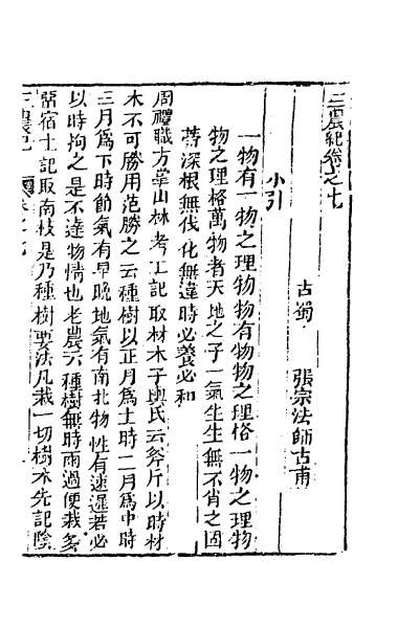 三農紀卷之七
古蜀　張宗法師古甫
小引
一物有一物之理物物有物物之理俗一物之理物
物之理格萬物者天地之子一氣生生無不肖之固
蒂深根無伐化無違時必養必和
周禮職方掌山林考工記取材木子輿氏云斧斤以時材
木不可勝用范勝之云種樹以正月爲上時二月爲中時
三月爲下時節氣有早晚地氣有南北物性有速遲若必
以時拘之是不達物情也老農云種樹無時雨過便栽多
留宿土記取南枝是乃種樹要法凡栽一切樹木先記陰
三農紀　卷之七